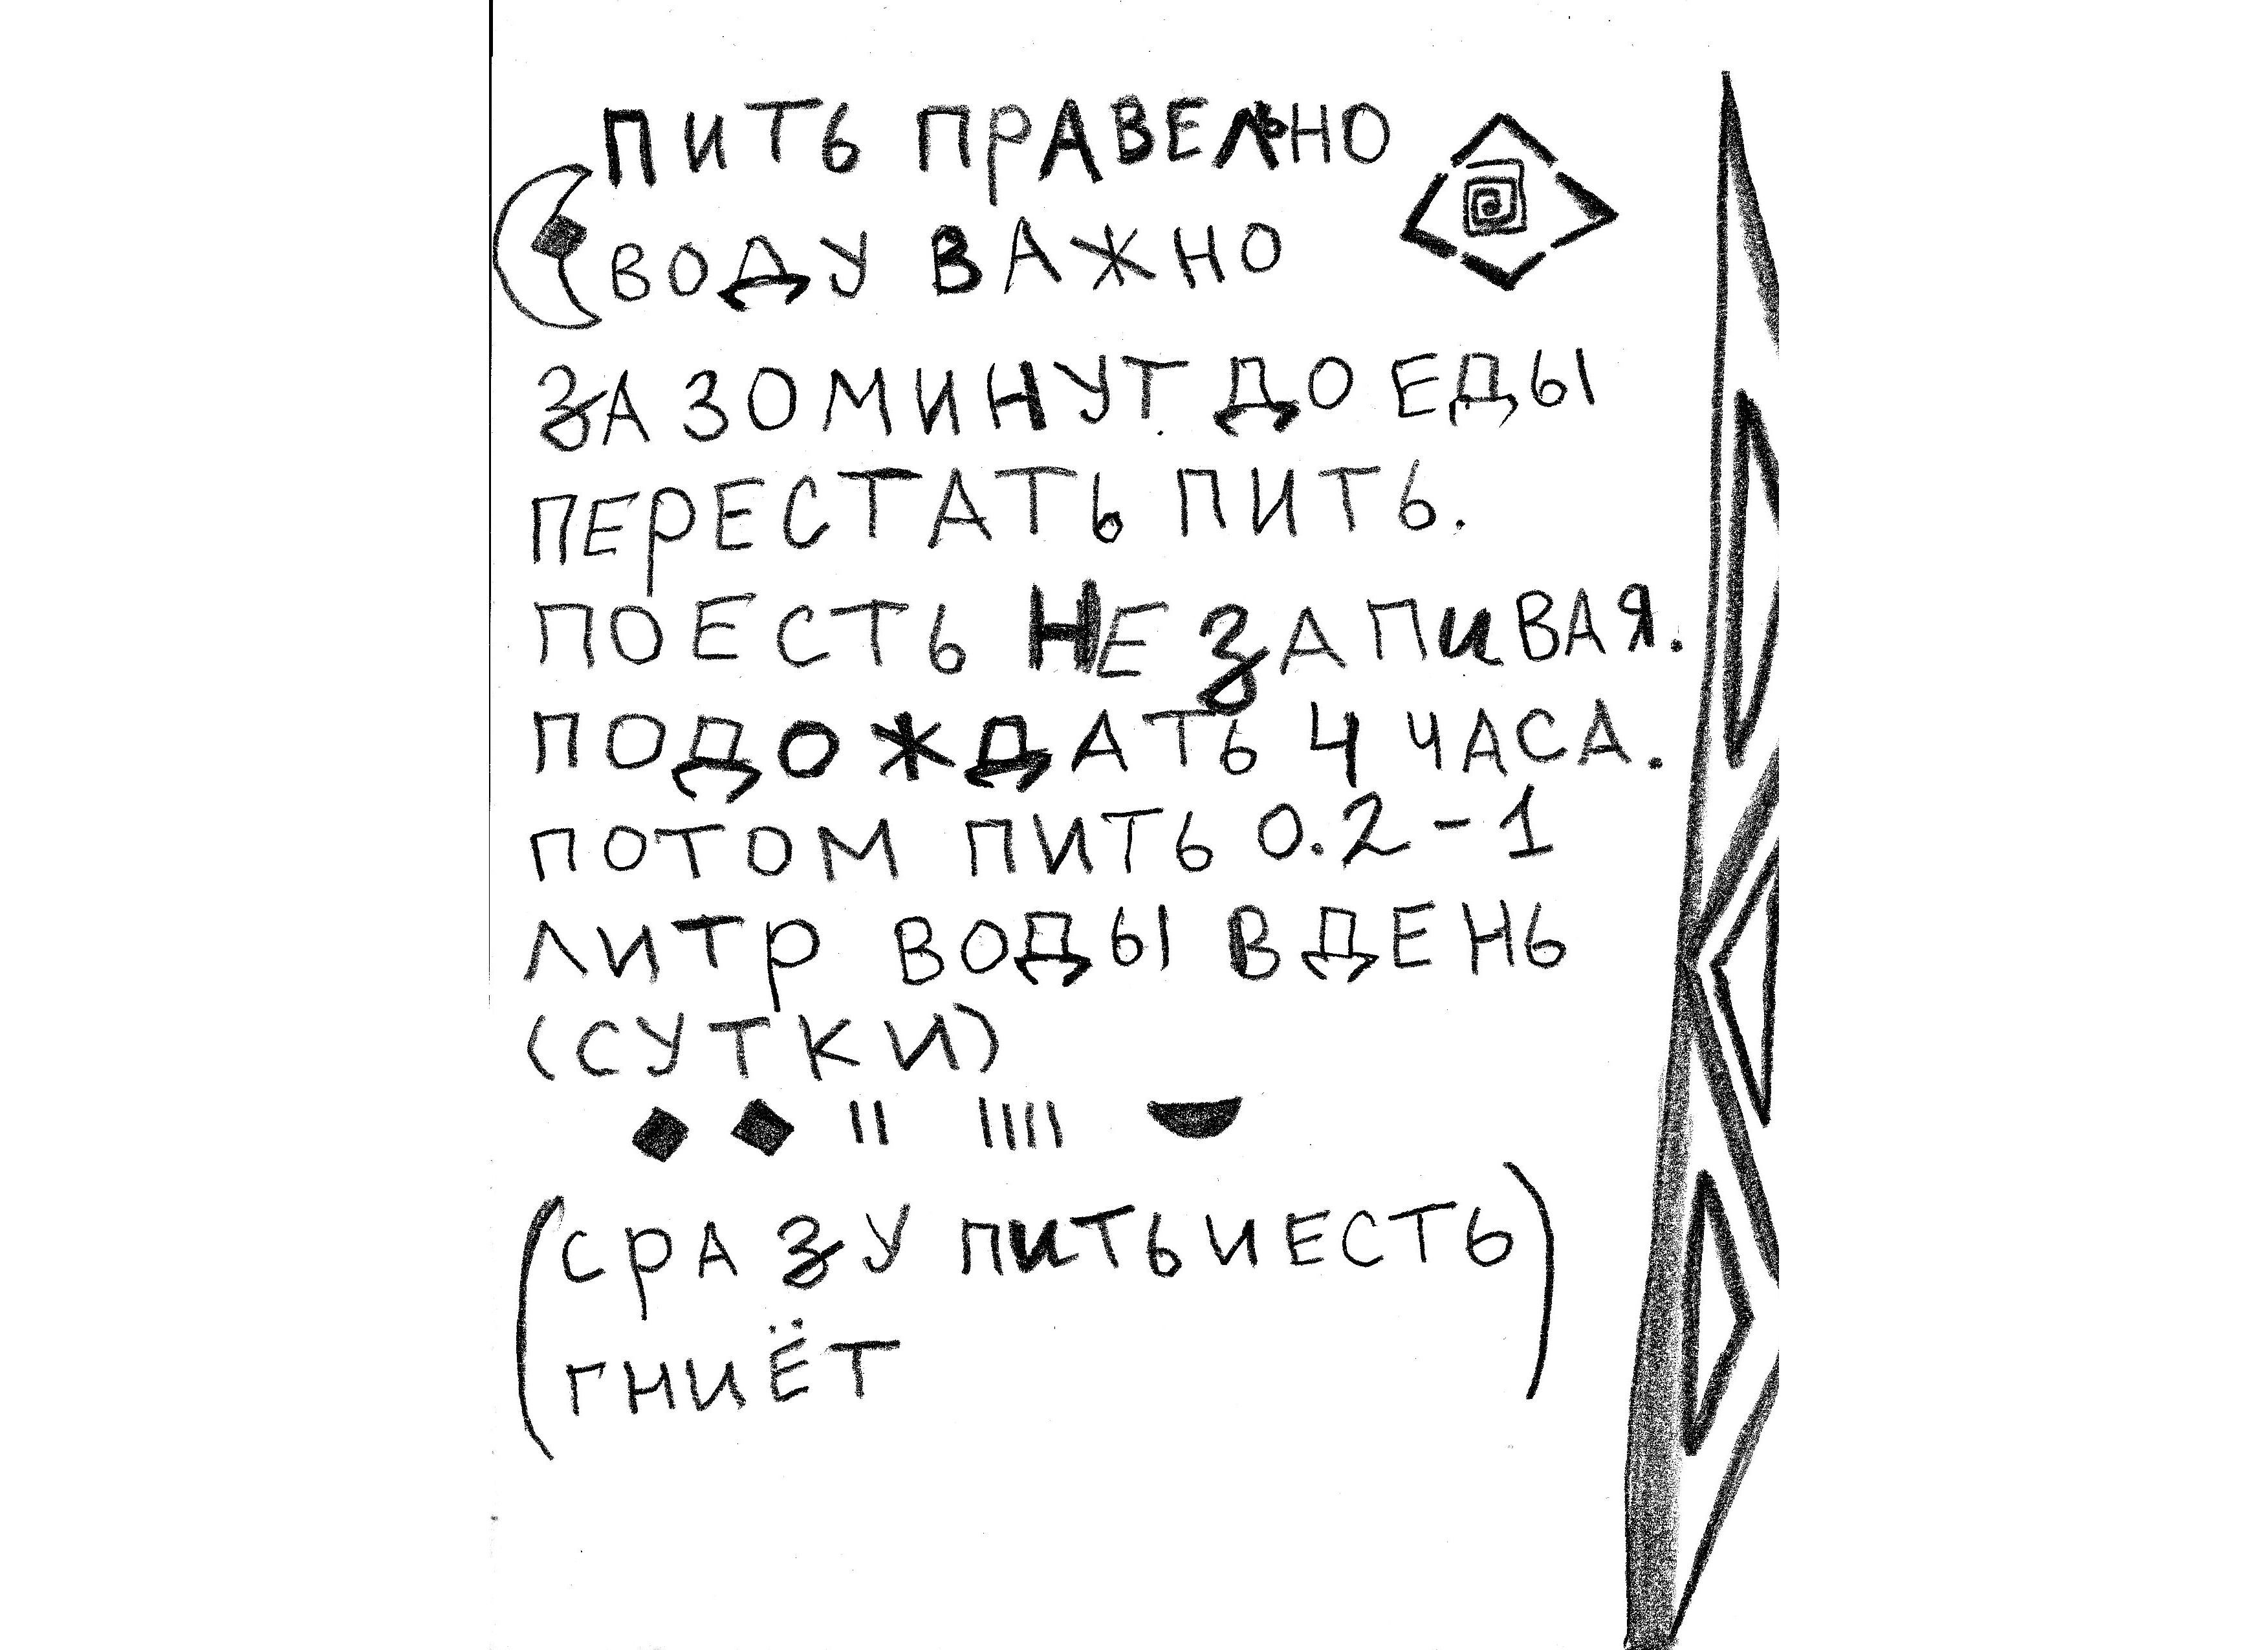 ПИТЬ ПРАВЕЛЬНО
ВОДУ ВАЖНО
ЗА 30 МИНУТ ДО ЕДЫ
ПЕРЕСТАТЬ ПИТЬ.
ПОЕСТЬ НЕ ЗАПИВАЯ.
ПОДОЖДАТЬ 4 ЧАСА.
ПОТОМ ПИТЬ 0.2-1
ЛИТР ВОДЫ В ДЕНЬ
(СУТКИ)
(СРАЗУ ПИТЬ И ЕСТЬ
ГНИЁТ)